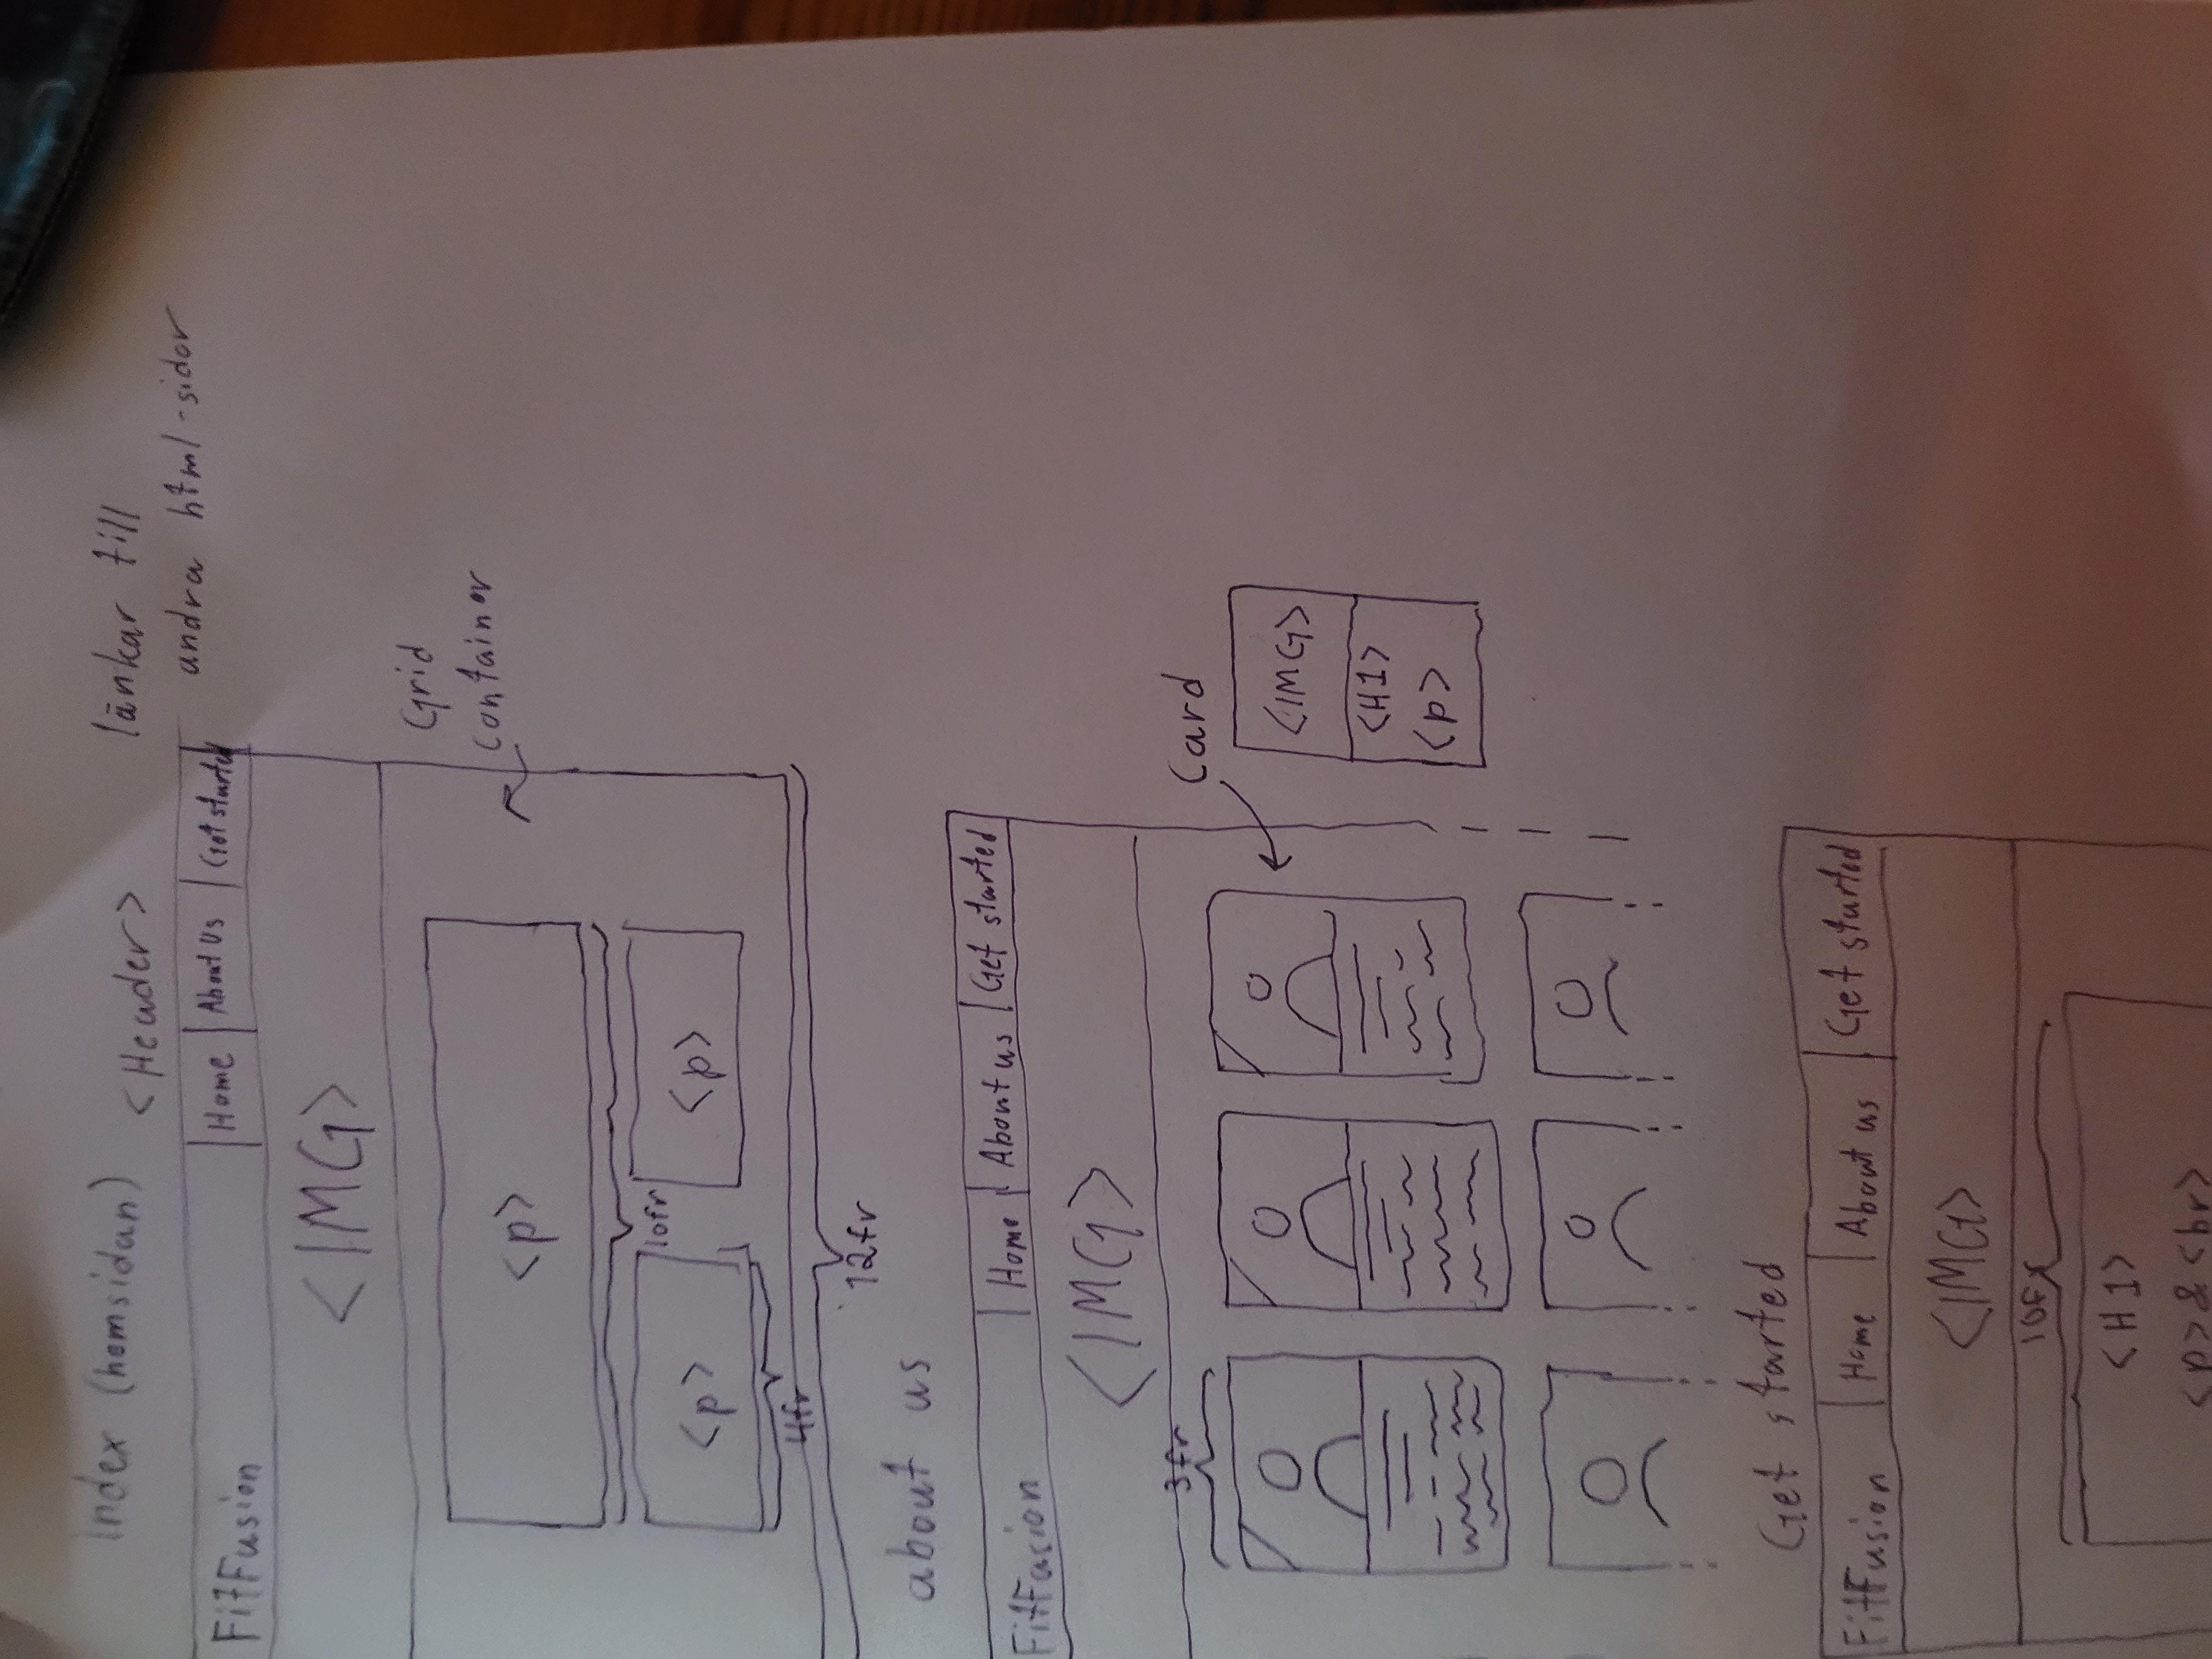 Index (hemsidan)
<Header>
länkar till
andra html-sidor
FitFusion
Home
About Us
Get started
<IMG>
Grid
container
<p>
10fr
<p>
<p>
4fr
12fr
about us
FitFusion
Home
About us
Get started
<IMG>
3fr
Card
<IMG>
<H1>
<p>
Get started
FitFusion
Home
About us
Get started
<IMG>
10fr
<H1>
<p> & <br>